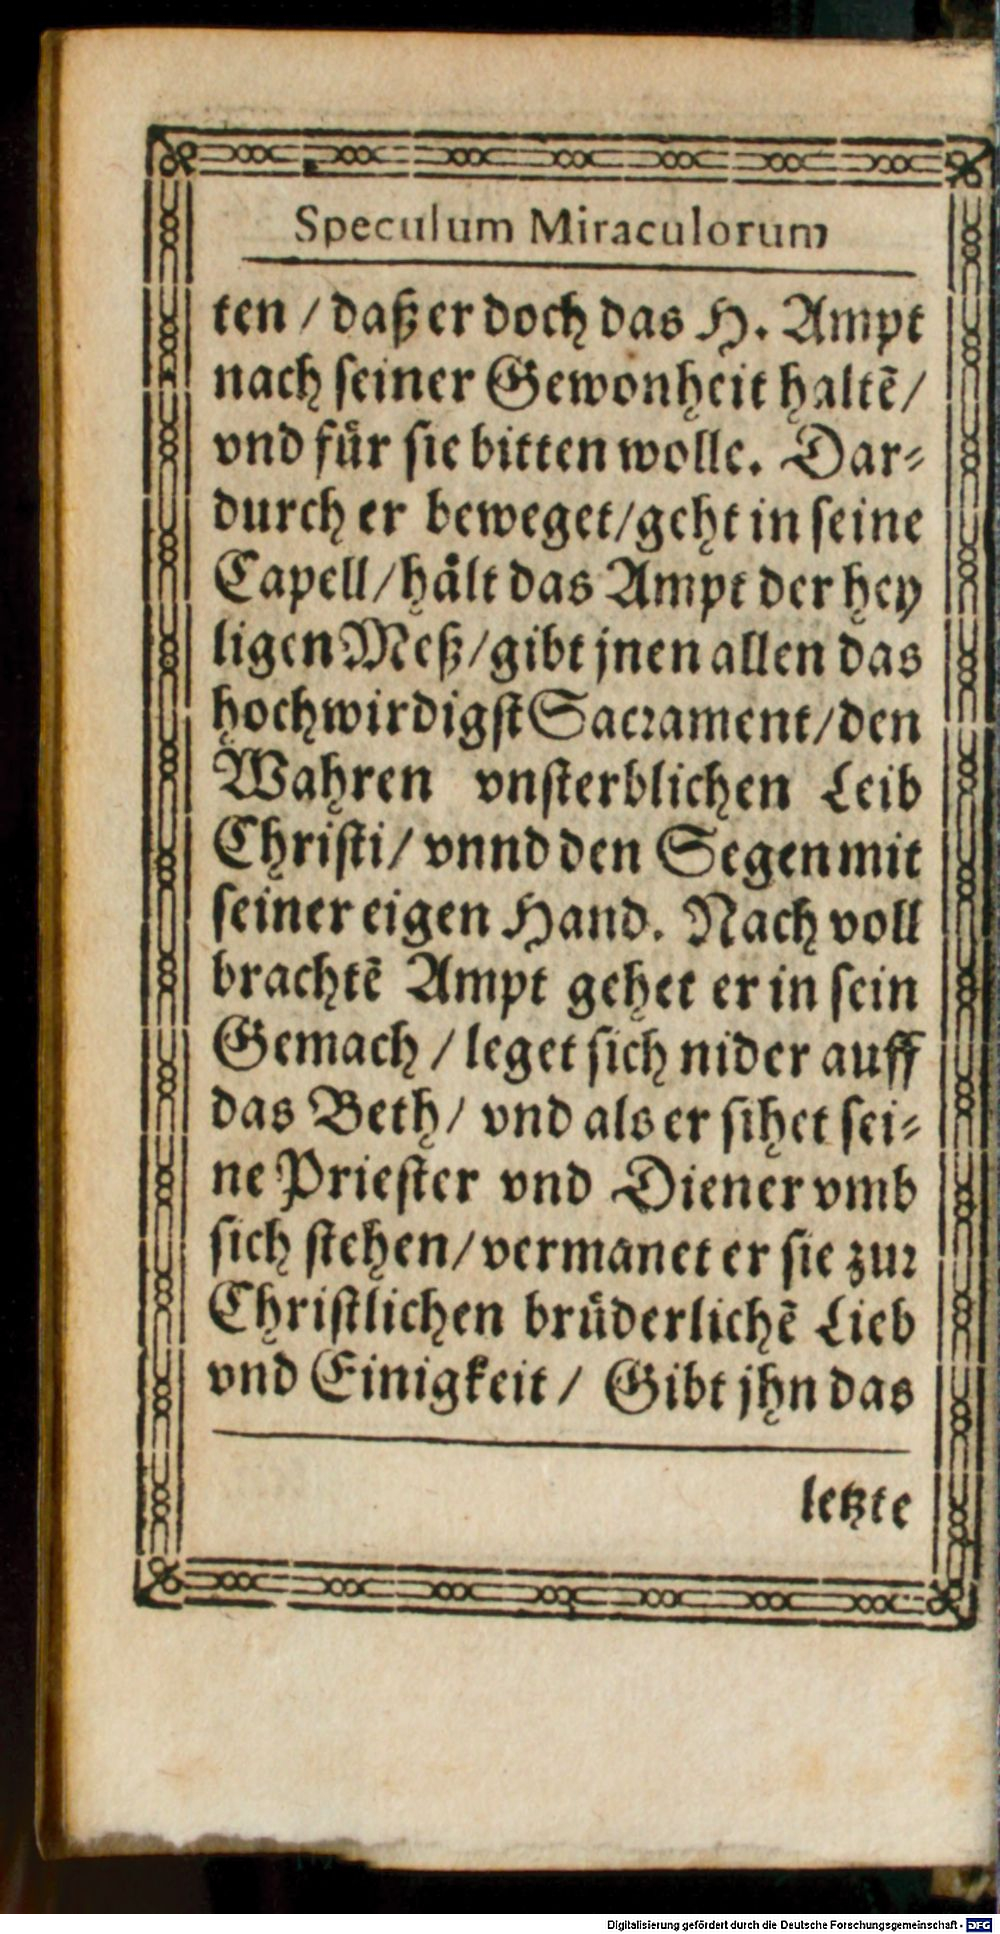 Speculum Miraculorum
ten / daß er doch das H. Ampt
nach seiner Gewonheit haltē /
vnd für sie bitten wolle. Dar-
durch er beweget / geht in seine
Capell / hält das Ampt der hey
ligen Meß / gibt jnen allen das
hochwirdigst Sacrament / den
Wahren vnsterblichen Leib
Christi / vnnd den Segen mit
seiner eigen Hand. Nach voll
brachtē Ampt gehet er in sein
Gemach / leget sich nider auff
das Beth / vnd als er sihet sei-
ne Priester vnd Diener vmb
sich stehen / vermanet er sie zur
Christlichen brüderlichē Lieb
vnd Einigkeit / Gibt jhn das
letzte
Digitalisierung gefördert durch die Deutsche Forschungsgemeinschaft - DFG